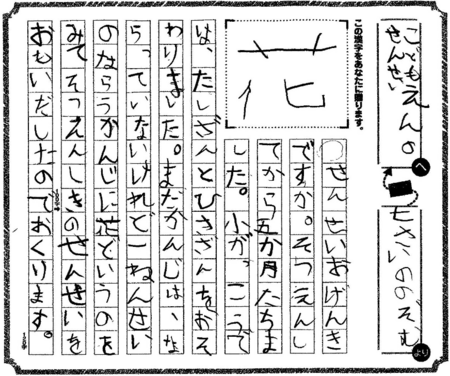 こどもえんの
せんせい
へ
七さいののぞむ
より
この漢字をあなたに贈ります。
花
せんせいおげんき
ですか。そつえんし
てから五か月たちま
した。小がっこうで
は、たしざんとひきざんをおそ
わりました。まだかんじは、な
らっていないけれど一ねんせい
のならうかんじに花というのを
みてそつえんしきのせんせいを
おもいだしたのでおくります。